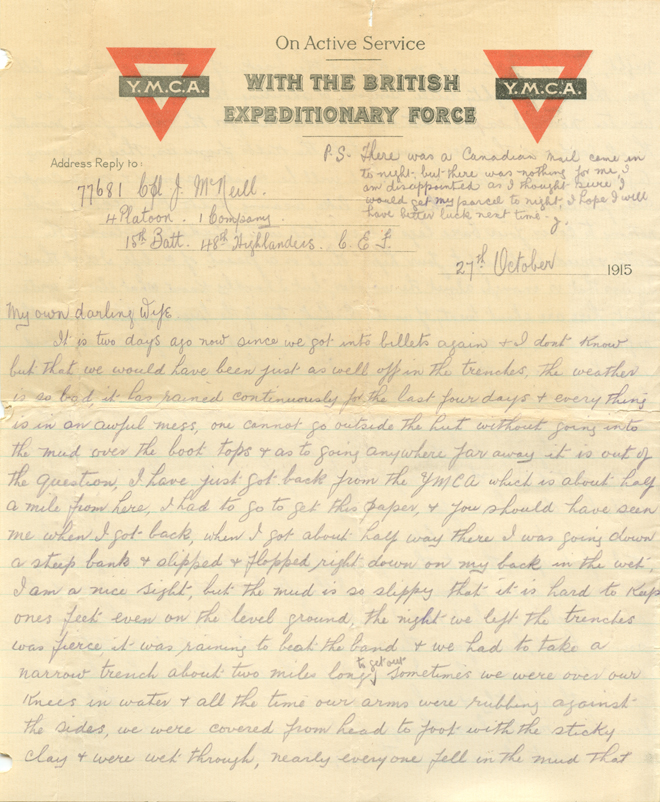 On Active Service
WITH THE BRITISH
EXPEDITIONARY FORCE
Y.M.C.A.
Y.M.C.A.
P.S. There was a Canadian mail come in
to night, but there was nothing for me, I
am disappointed as I thought sure I
would get my parcel to night, I hope I will
have better luck next time. J.
Address Reply to:
77681 Cpl J. McNeill.
4 Platoon. 1 Company.
15th Batt. 48th Highlanders. C. E. F.
27th October 1915
My own darling Wife.
It is two days ago now since we got into billets again + I dont know
but that we would have been just as well off in the trenches, the weather
is so bad it has rained continuously for the last four days + every thing
is in an awful mess, one cannot go outside the hut without going into
the mud over the boot tops + as to going anywhere far away it is out of
the question, I have just got back from the YMCA which is about half
a mile from here, I had to go to get this paper, + you should have seen
me when I got back, when I got about half way there I was going down
a steep bank + slipped + flopped right down on my back in the wet,
I am a nice sight, but the mud is so slippy that it is hard to keep
ones feet even on the level ground, the night we left the trenches
was fierce, it was raining to beat the band + we had to take a
narrow trench about two miles long to get out, sometimes we were over our
knees in water + all the time our arms were rubbing against
the sides, we were covered from head to foot with the sticky
clay + were wet through, nearly everyone fell in the mud that